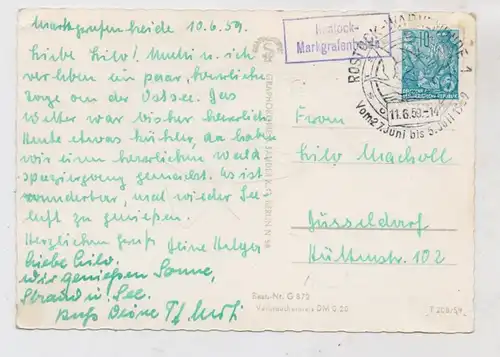 Markgrafenheide 10.6.59.
Liebe Lilo! Mutti u. ich
verleben ein paar herrliche
Tage an der Ostsee. Das
Wetter war bisher herrlich
Heute etwas kühler, da haben
wir einen herrlichen Wald
spaziergang gemacht. Es ist
wunderbar, mal wieder See-
luft zu genießen.
Herzlichen Gruß Deine Helga
Liebe Lilo.
wir genießen Sonne,
Strand u. See.
Deine
Rostock-
Markgrafenheide
ROSTOCK-WARNEMÜNDE 1
11.6.59.-14
Vom 27. Juni bis 5. Juli 1959
10
Lilo Macholl
Düsseldorf
Hüttenstr. 102
Best.-Nr. G 872
Verbraucherpreis DM 0,20